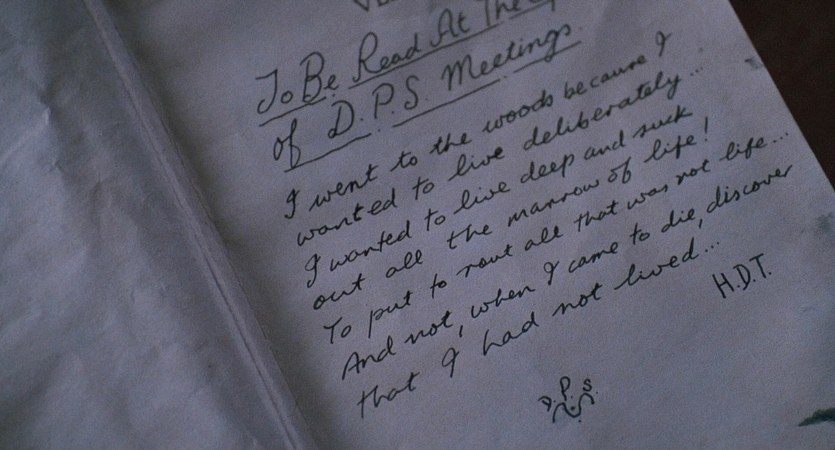 To Be Read At The
of D.P.S. Meetings.
I went to the woods because I
wanted to live deliberately...
I wanted to live deep and suck
out all the marrow of life!
To put to rout all that was not life...
And not, when I came to die, discover
that I had not lived...
H.D.T.
D.P.S.